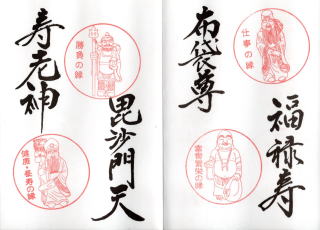 福禄寿
仕事の縁
布袋尊
商売繁栄の縁
毘沙門天
勝負の縁
寿老神
健康・長寿の縁